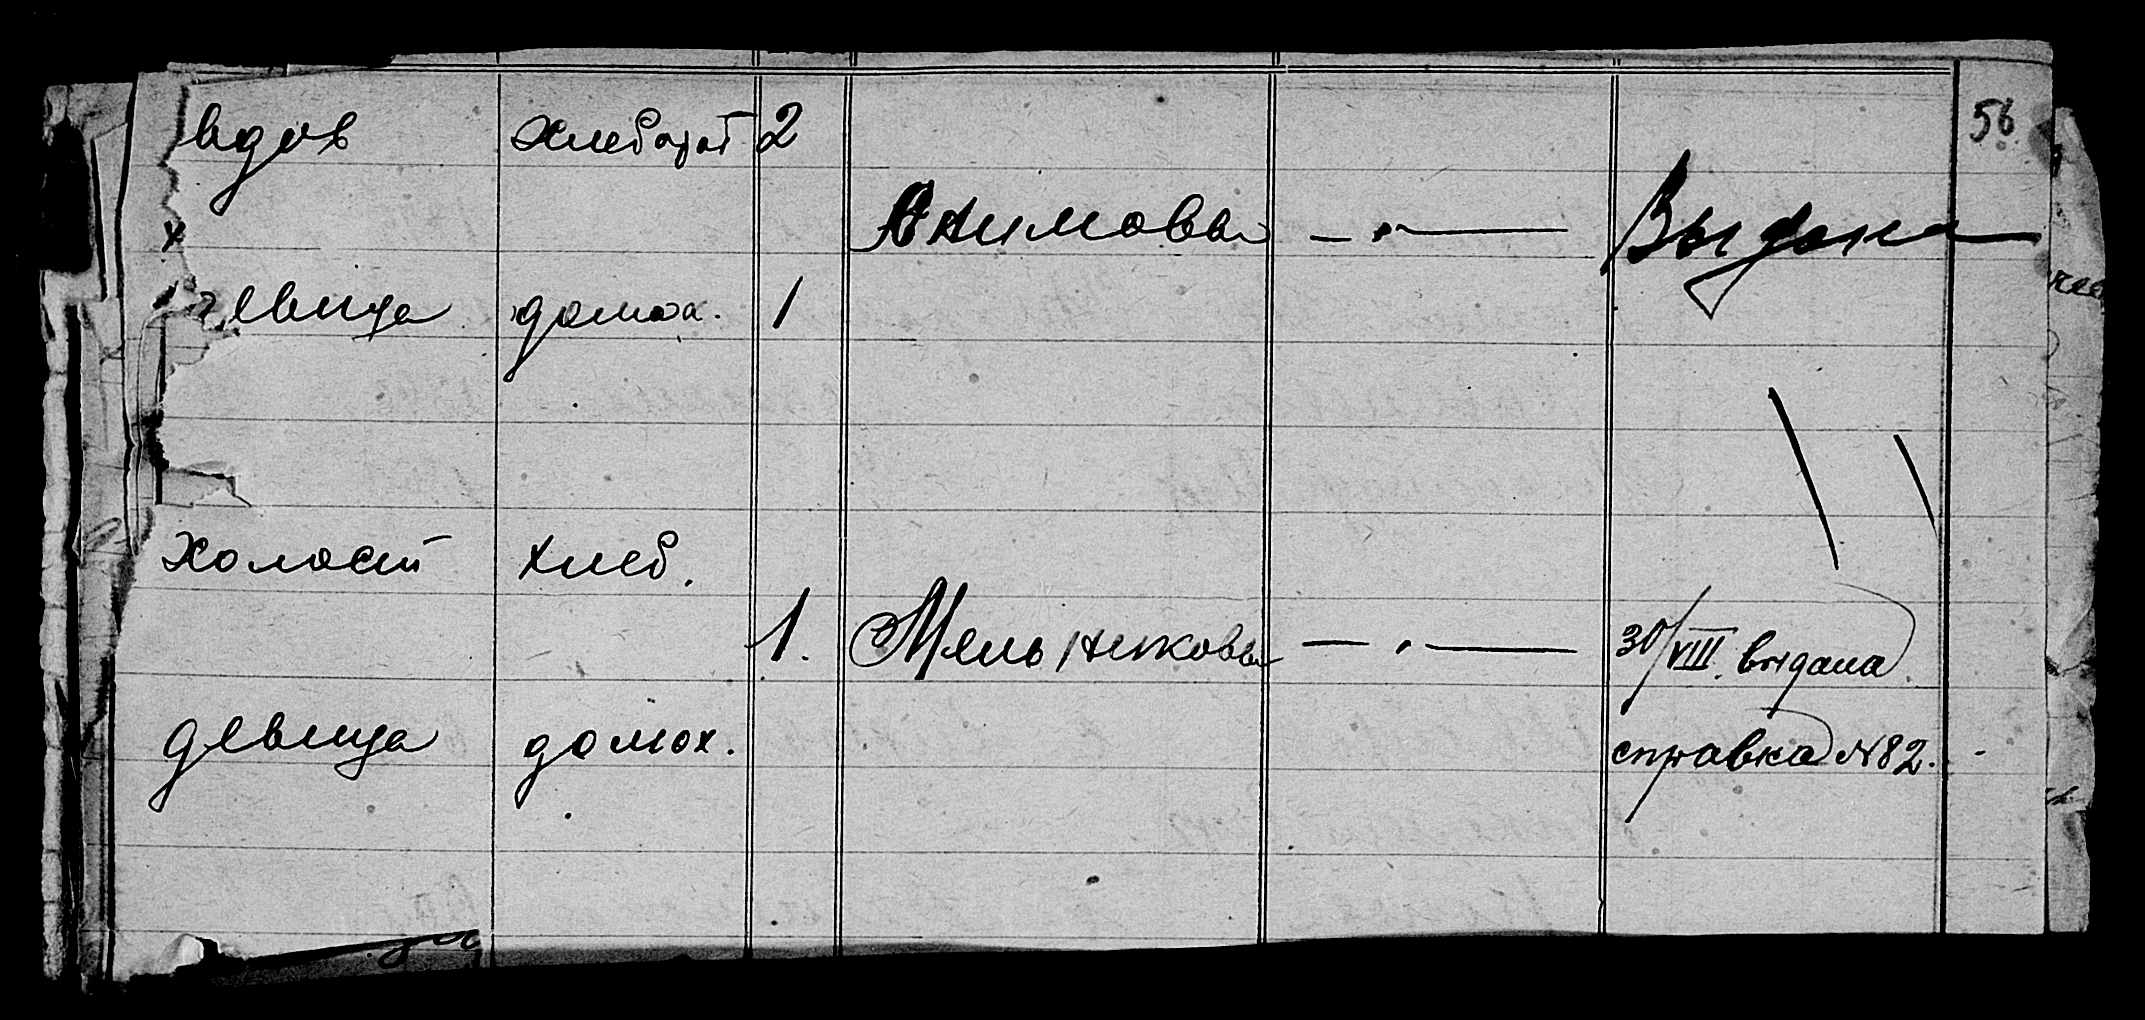 вдов хлебораб 2 56
Акимовы — " — Выдана
девица домох. 1
холост хлеб.
1. Мельниковы — " — 30/VIII. выдана
девица домох. справка N82.